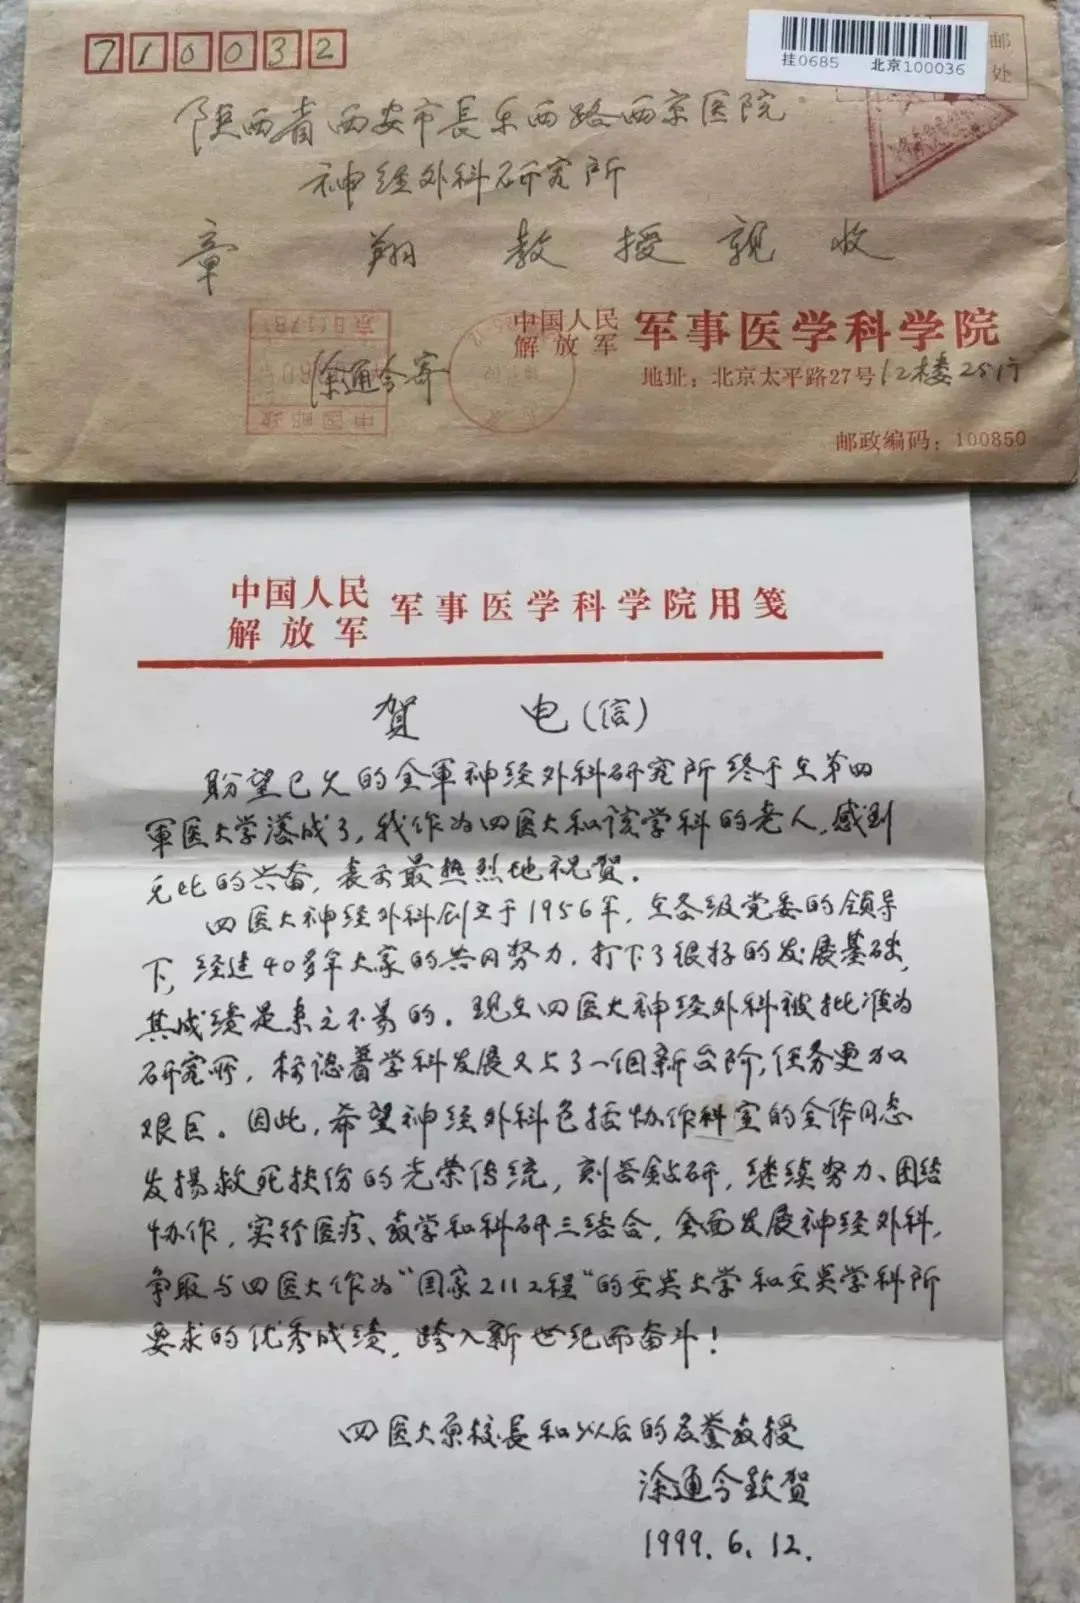 710032
挂0685 北京100036
邮
处
陕西省西安市長乐西路西京医院
神经外科研究所
章翔教授親收
中国人民解放军 军事医学科学院
地址：北京太平路27号12楼25门
涂通今寄
中国邮政
邮政编码：100850
中国人民解放军 军事医学科学院用笺
贺 电(信)
盼望已久的全軍神经外科研究所终于在第四
軍医大学落成了，我作为四医大和该学科的老人，感到
无比的兴奋，表示最热烈地祝贺。
四医大神经外科创立于1956年，在各级党委的领导
下，经过40多年大家的共同努力，打下了很好的发展基础，
其成绩是来之不易的。现在四医大神经外科被批准为
研究所，标志着学科发展又上了一個新台阶，任务更加
艰巨。因此，希望神经外科包括协作科室的全体同志
发揚救死扶伤的光荣传统，刻苦鉆研，继续努力、团结
协作，实行医疗、教学和科研三结合，全面发展神经外科，
争取与四医大作为“国家211工程”的重点大学和重点学科所
要求的优秀成绩，跨入新世纪而奋斗！
四医大原校長和以后的名誉教授
涂通今致贺
1999.6.12.